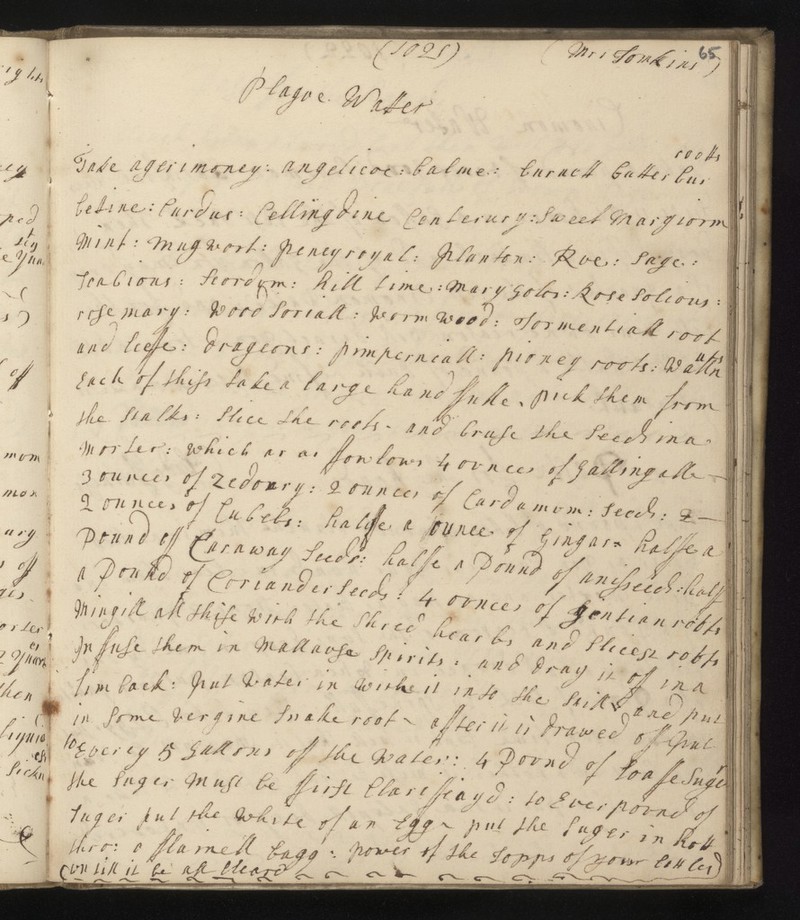 (1025) (Mrs Tomkins) 65
Plague Watter
roots
Take agerimoney: angelicoe: balme: burnett butter bur
betine: Cardus: Cellingdine Centerury: Sweet Margiorm
Mint: mugwort: peneyroyal: planton: Rue: Sage:
Scabious: Scordym: hill time: mary golds: Rose Solious:
rose mary: wood Soriall: worm wood: Tormentiall root
and leefe: dragions: pimperneall: pioney roots: Walln
uts
Each of thiss take a large hand fulle, pick them from
the Stalks: Slice the roots - and bruse the Seeds in a
Morter: which ar as ffowlows 4 ovnces of Gallingalle
3 ounces of Zedonry: 2 ounces of Cardamom: Seeds: 2
2 ounces of Cubebs: halfe a ounce of Gingar: halfe a
Pound off Caraway Seeds: halfe a Pound of anisseeds: half
a Pound of Coriander Seeds: 4 ovnces of Gentian roots
Mingill all thise with the Shred hearbs and Slicest roots
Infuse them in Mallause Spirits: and dray it of in a
limback: put Water in with it into the Still and put
in Some Vergine Snake root - after it is drawed off put
to Everey 5 Gallons off the Water: 4 Pound of Loafe Suger
the Suger Must be ffirst Clariffiayd: to Ever pound of
Suger put the White of an Egg - put the Suger in hott
thro: a fflainell bagg: power of the Topps of your bottles
(untill it be all Cleard)